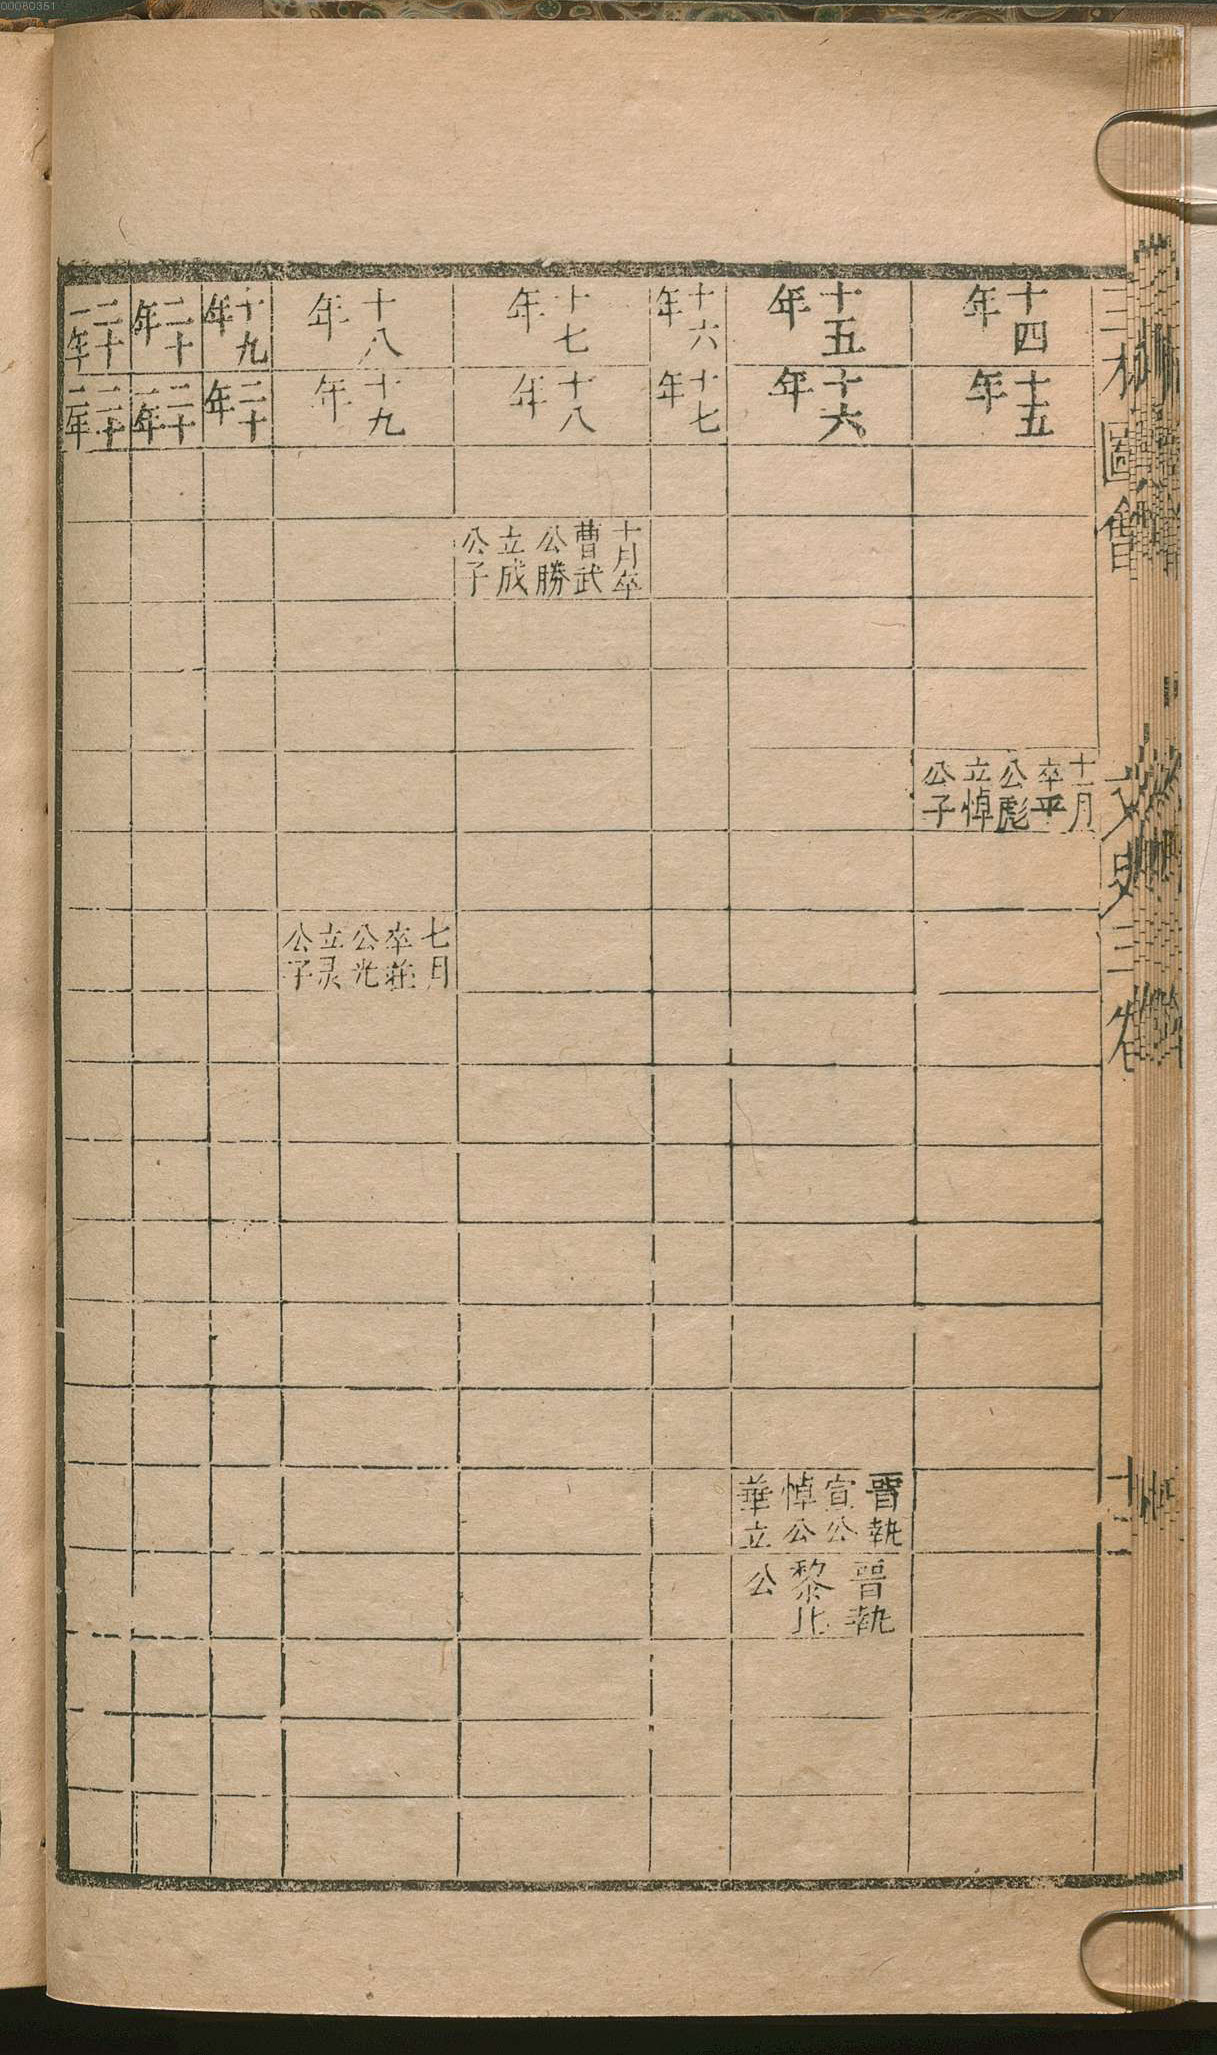 00060351
三才圖會
文史三卷
十二
十四年
十五年
十一月
卒平
公彪
立悼
公子
十五年
十六年
晋執
宣公
悼公
華立
晋執
黎比
公
十六年
十七年
十七年
十八年
十月卒
曹武
公勝
立成
公子
十八年
十九年
七月
卒莊
公光
立灵
公子
十九年
二十年
二十年
二十一年
二十一年
二十二年